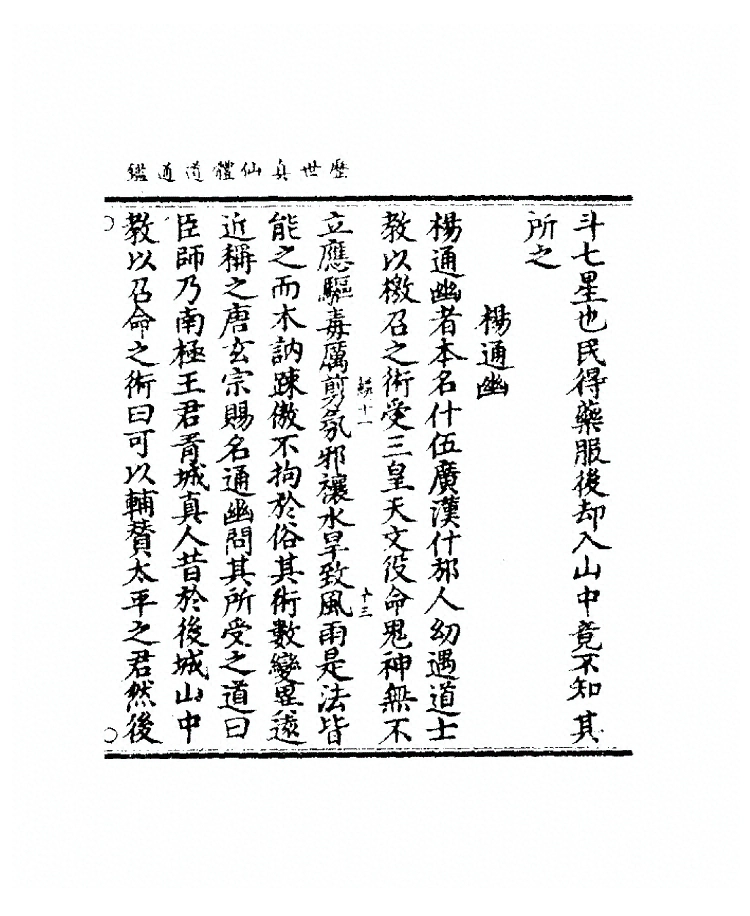 歷世真仙體道通鑑
斗七星也民得藥服後却入山中竟不知其
所之
楊通幽
楊通幽者本名什伍廣漢什邡人幼遇道士
教以檄召之術受三皇天文役命鬼神無不
立應驅毒厲剪氛邪禳水旱致風雨是法皆
能之而木訥踈傲不拘於俗其術數變異遠
近稱之唐玄宗賜名通幽問其所受之道曰
臣師乃南極王君青城真人昔於後城山中
教以召命之術曰可以輔贊太平之君然後
十三